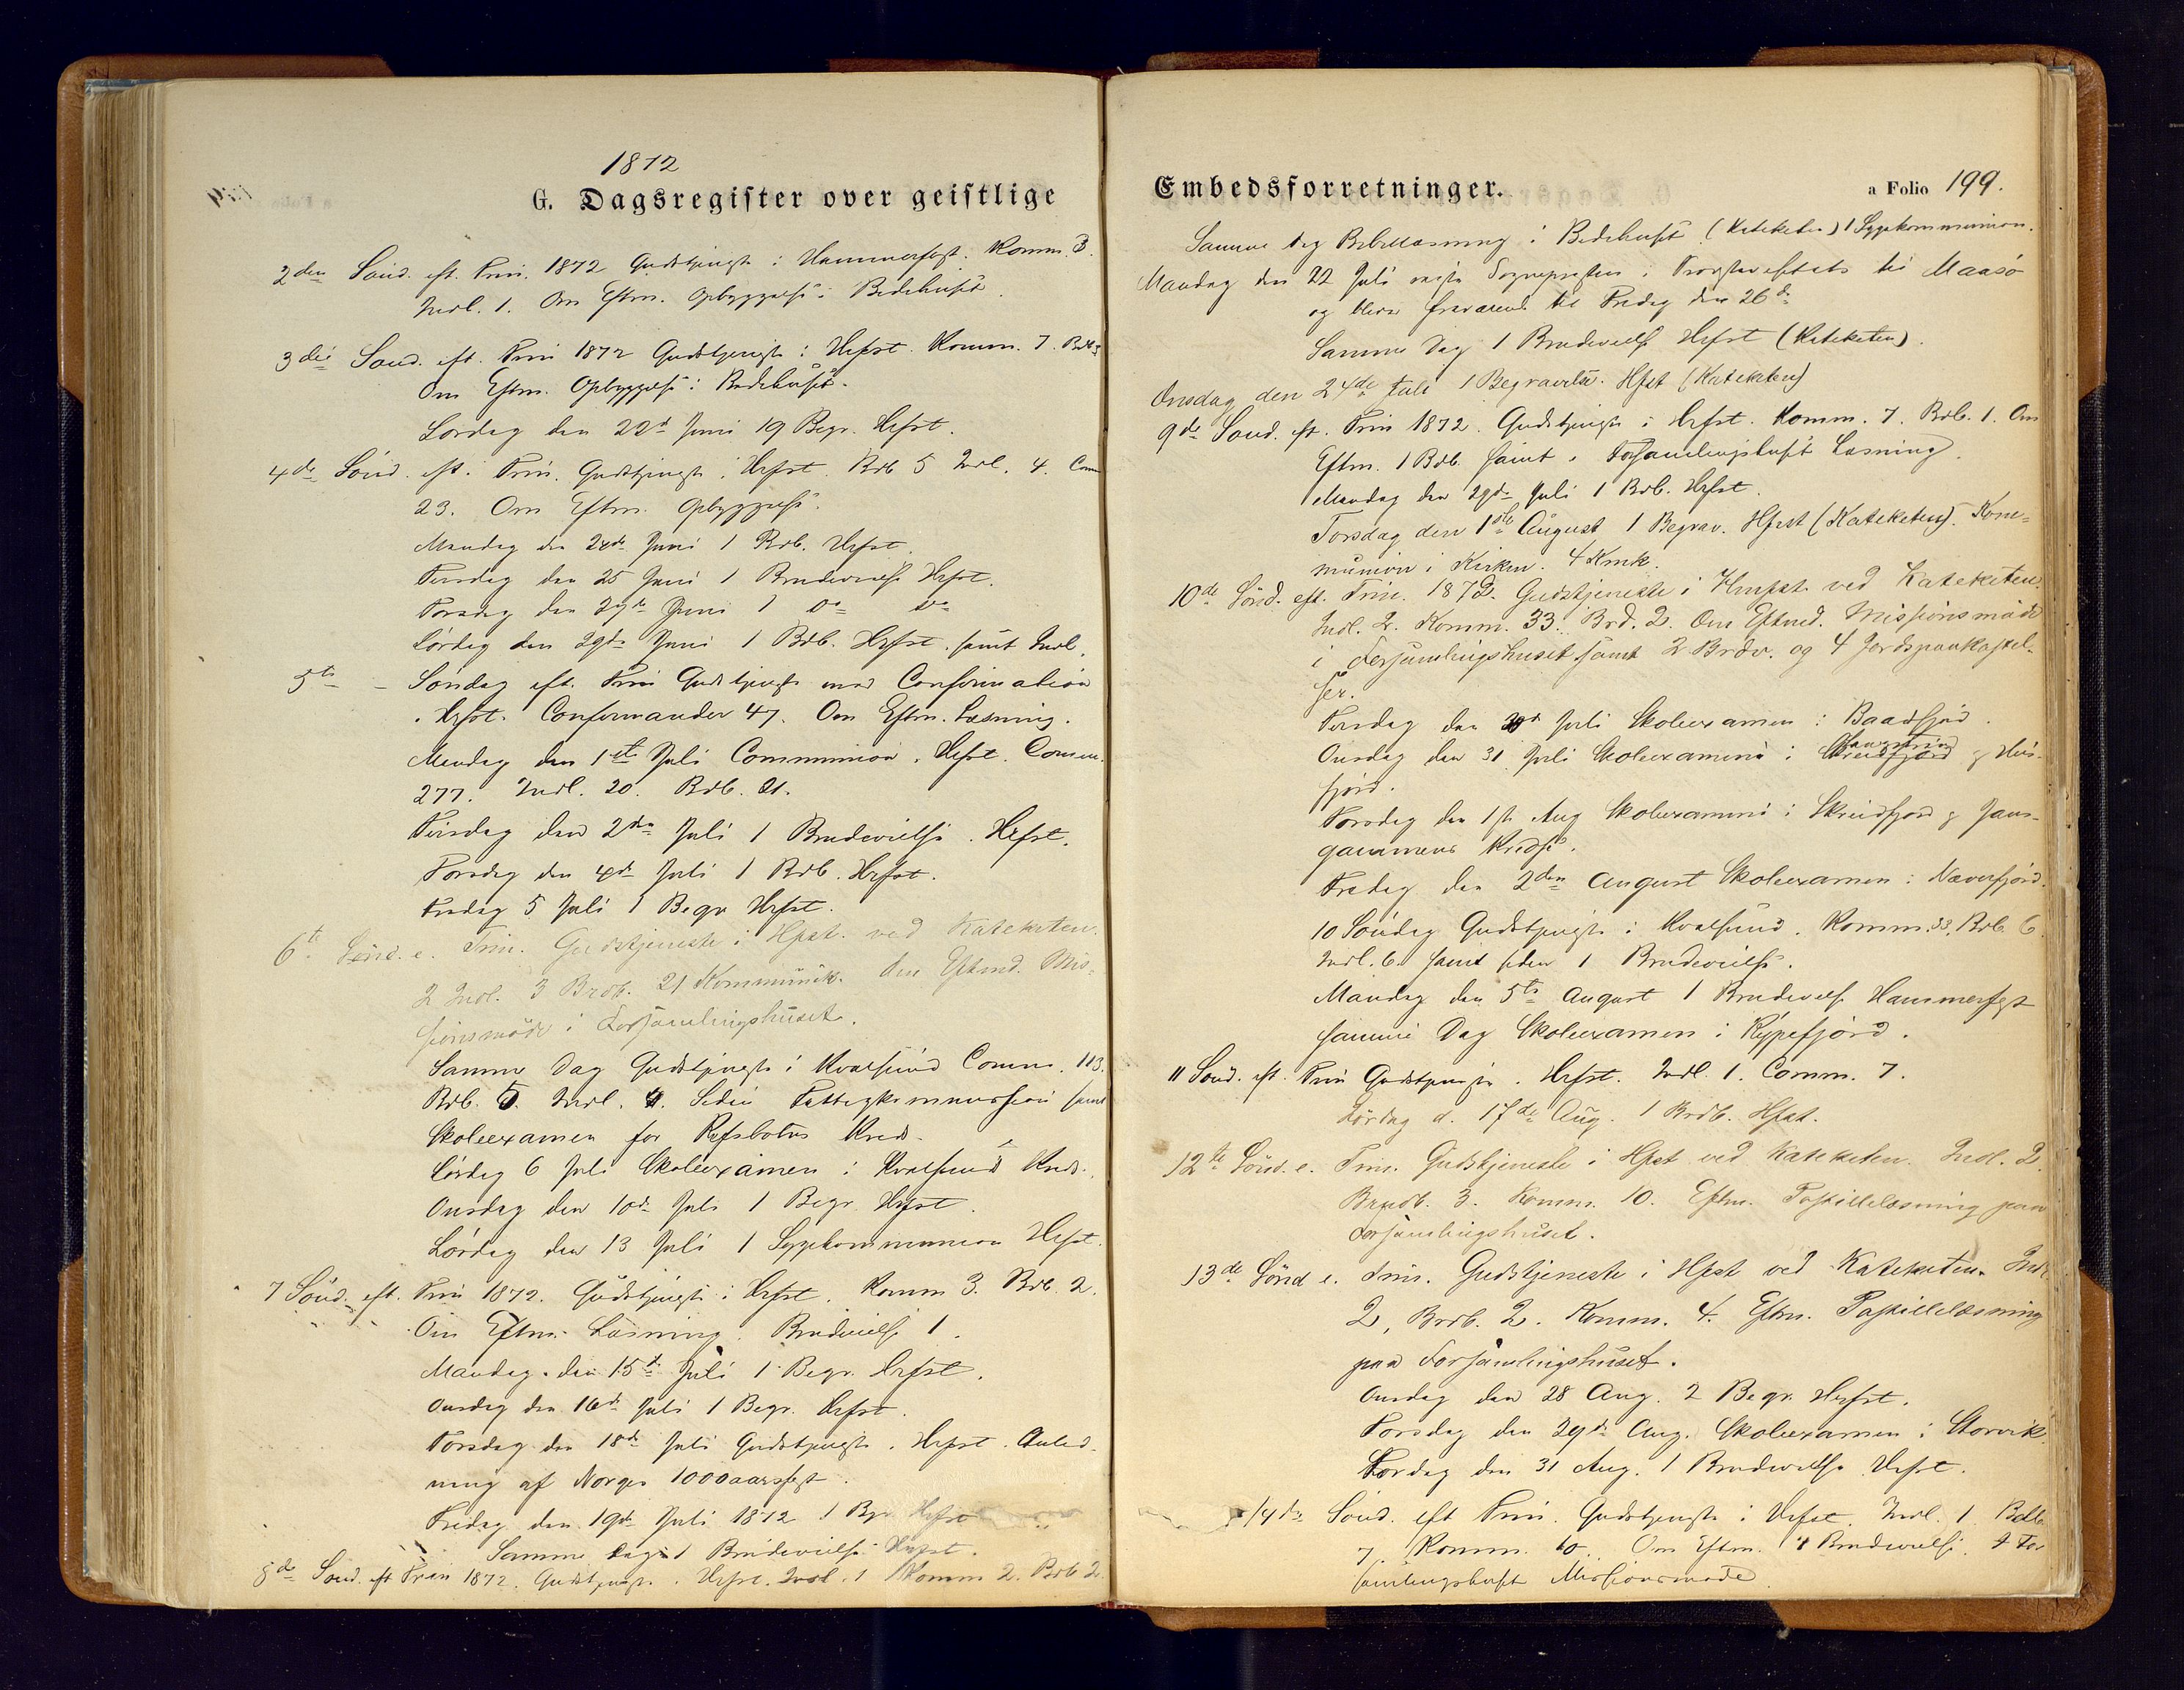 1872
G. Dagsregister over geistlige
2den Sønd. eft. Trin. 1872 Gudstjeneste i Hammerfest. Komm. 3.
Indl. 1. Om Eftm. Opbyggelse i Bedehuset.
3die Sønd. eft. Trin 1872 Gudstjeneste i Hrfst. Komm. 7. Brb 3
Om Eftm. Opbyggelse i Bedehuset.
Lørdag den 22d Juni 19 Begr. Hrfst.
4de Sønd. eft. Trin. Gudstjeneste i Hrfst Brb 5 Indl. 4. Com
23. Om Eftm. Opbyggelse.
Mandag den 24de Juni 1 Brb. Hrfst.
Tirsdag den 25 Juni 1 Brudevielse Hrfst.
Torsdag den 27de Juni 1 do do
Lørdag den 29de Juni 1 Brb. Hrfst. samt Indl.
5te – Søndag eft. Trin Gudstjeneste med Confirmation
i Hrfst. Confirmander 47. Om Eftm. Læsning.
Mandag den 1ste Juli Communion i Hrfst. Comm.
277. Indl. 20. Brb. 21.
Tirsdag den 2den Juli 1 Brudevielse i Hrfst.
Torsdag den 4de Juli 1 Brb. Hrfst.
Fredag 5 Juli 1 Begr Hrfst.
6te Sønd. e. Trin. Gudstjeneste i Hfst. ved Kateketen.
2 Indl. 3 Brdb. 21 Kommunik. Om Eftmd. Mis-
sionsmöde i Forsamlingshuset.
Samme Dag Gudstjeneste i Kvalsund Comm. 113.
Brb. 5. Indl. 4. Siden Fattigkommission samt
Skoleexamen for Refsbotns Kreds.
Lørdag 6 Juli Skoleexamen i Kvalsund Kreds.
Onsdag den 10de Juli 1 Begr. Hrfst.
Lørdag den 13 Juli 1 Sygekommunion Hrfst.
7 Sønd. eft. Trin 1872. Gudstjeneste i Hrfst. Komm 3. Brb. 2.
Om Eftm. Læsning. Brudevielse 1.
Mandag den 15de Juli 1 Begr. Hrfst.
Onsdag den 16de Juli 1 Begr. Hrfst.
Torsdag den 18de Juli Gudstjeneste i Hrfst. Anled-
ning af Norges 1000aarsfest.
Fredag den 19de Juli 1872 1 Bgr Hrfst
Samme Dag 1 Brudevielse Hrfst.
8de Sønd. eft Trin 1872. Gudstjeneste i Hrfst. Indl. 1 Komm 2. Brb 2.
Embedsforretninger.
a Folio 199.
Samme Dag Bibellæsning i Bedehuset (Kateketen) 1 Sygekommunion.
Mandag den 22 Juli reiste Sognepresten i til Maasø
og blev fraværende til Fredag den 26de
Samme Dag 1 Brudevielse Hrfst (Kateketen).
Onsdag den 24de Juli 1 Begravelse. Hfst (Kateketen)
9de Sønd. eft. Trin 1872. Gudstjeneste i Hrfst. Komm. 7. Brb. 1. Om
Eftm. 1 Brb. samt i Forsamlingshuset Læsning.
Mandag den 29de Juli 1 Brb. Hrfst.
Torsdag den 1ste August 1 Begrav. Hfst (Kateketen). Kom-
munion i Kirken. 4 Kmk.
10de Sönd. eft. Trin. 1872. Gudstjeneste i Hmfst. ved Kateketen.
Indl. 2. Komm. 33. Brd. 2. Om Eftmd. Missionsmöde
i Forsamlingshuset samt 2 Brdv. og 4 Jordspaakastel-
ser.
Tirsdag den 30de Juli Skoleexamen i Baadfjord.
Onsdag den 31 Juli Skoleexamen i Skreidfjord og
fjord.
Torsdag den 1ste Aug Skoleexamen i Skreidfjord og Jans-
gammens Kreds.
Fredag den 2den August Skoleexamen i Næverfjord.
10 Søndag Gudstjeneste i Kvalsund. Komm. 33. Brb. 6
Indl. 6. samt siden 1 Brudevielse.
Mandag den 5te August 1 Brudevielse Hammerfest
samme Dag Skoleexamen i Rypefjord.
11 Sønd. eft. Trin Gudstjeneste i Hrfst. Indl. 1. Comm. 7.
Lördag d. 17de Aug. 1 Brdb. Hfst.
12te Sönd. e. Trin. Gudstjeneste i Hfst ved Kateketen. Indl. 2.
Brudb. 3. Komm. 10. Eftm. Postillelæsning paa
Forsamlingshuset.
13de Sönd e. Trin. Gudstjeneste i Hfst ved Kateketen. Indl.
2, Brdb. 2. Komm. 4. Eftm. Postillelæsning
paa Forsamlingshuset.
Onsdag den 28 Aug. 2 Begr. Hrfst.
Torsdag den 29de Aug. Skoleexamen i Storvik.
Lørdag den 31 Aug. 1 Brudevielse Hrfst.
14de Sønd. eft Trin. Gudstjeneste i Hrfst. Indl. 1 Brb
7. Komm. 10. Om Eftm. 1 Brudevielse. I For
samlingshuset Missionsmøde.